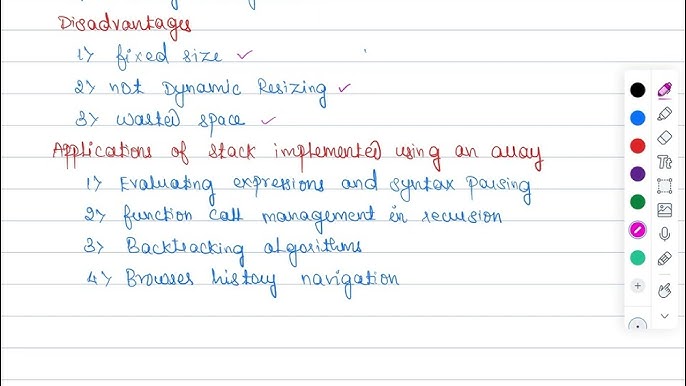 Disadvantages
1) fixed size
2) not Dynamic Resizing
3) wasted space
Applications of stack implemented using an array
1) Evaluating expressions and syntax parsing
2) function call management in recursion
3) Backtracking algorithms
4) Browser history navigation
Tt